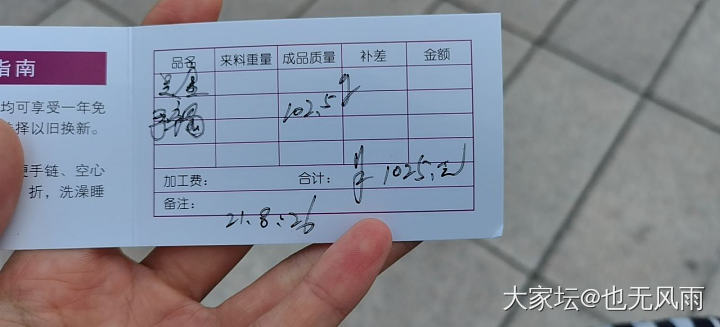 指南
均可享受一年免
择以旧换新。
手链、空心
折，洗澡睡
品名 来料重量 成品质量 补差 金额
足金
手镯 102.5g
加工费： 合计： 1025.
备注：
21.8.26
大家坛@也无风雨